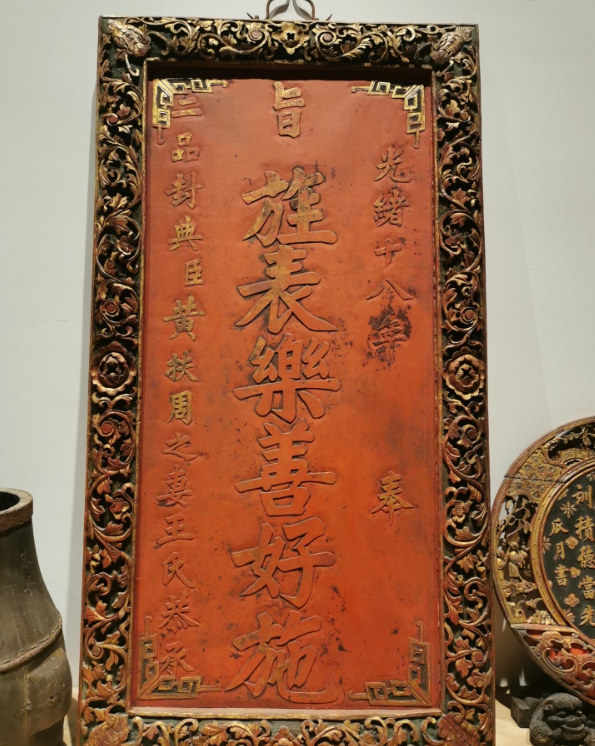 光緒十八年 奉
旨
旌表樂善好施
三品封典臣黃扶周之妻王氏恭承
積德當先
瓜月書